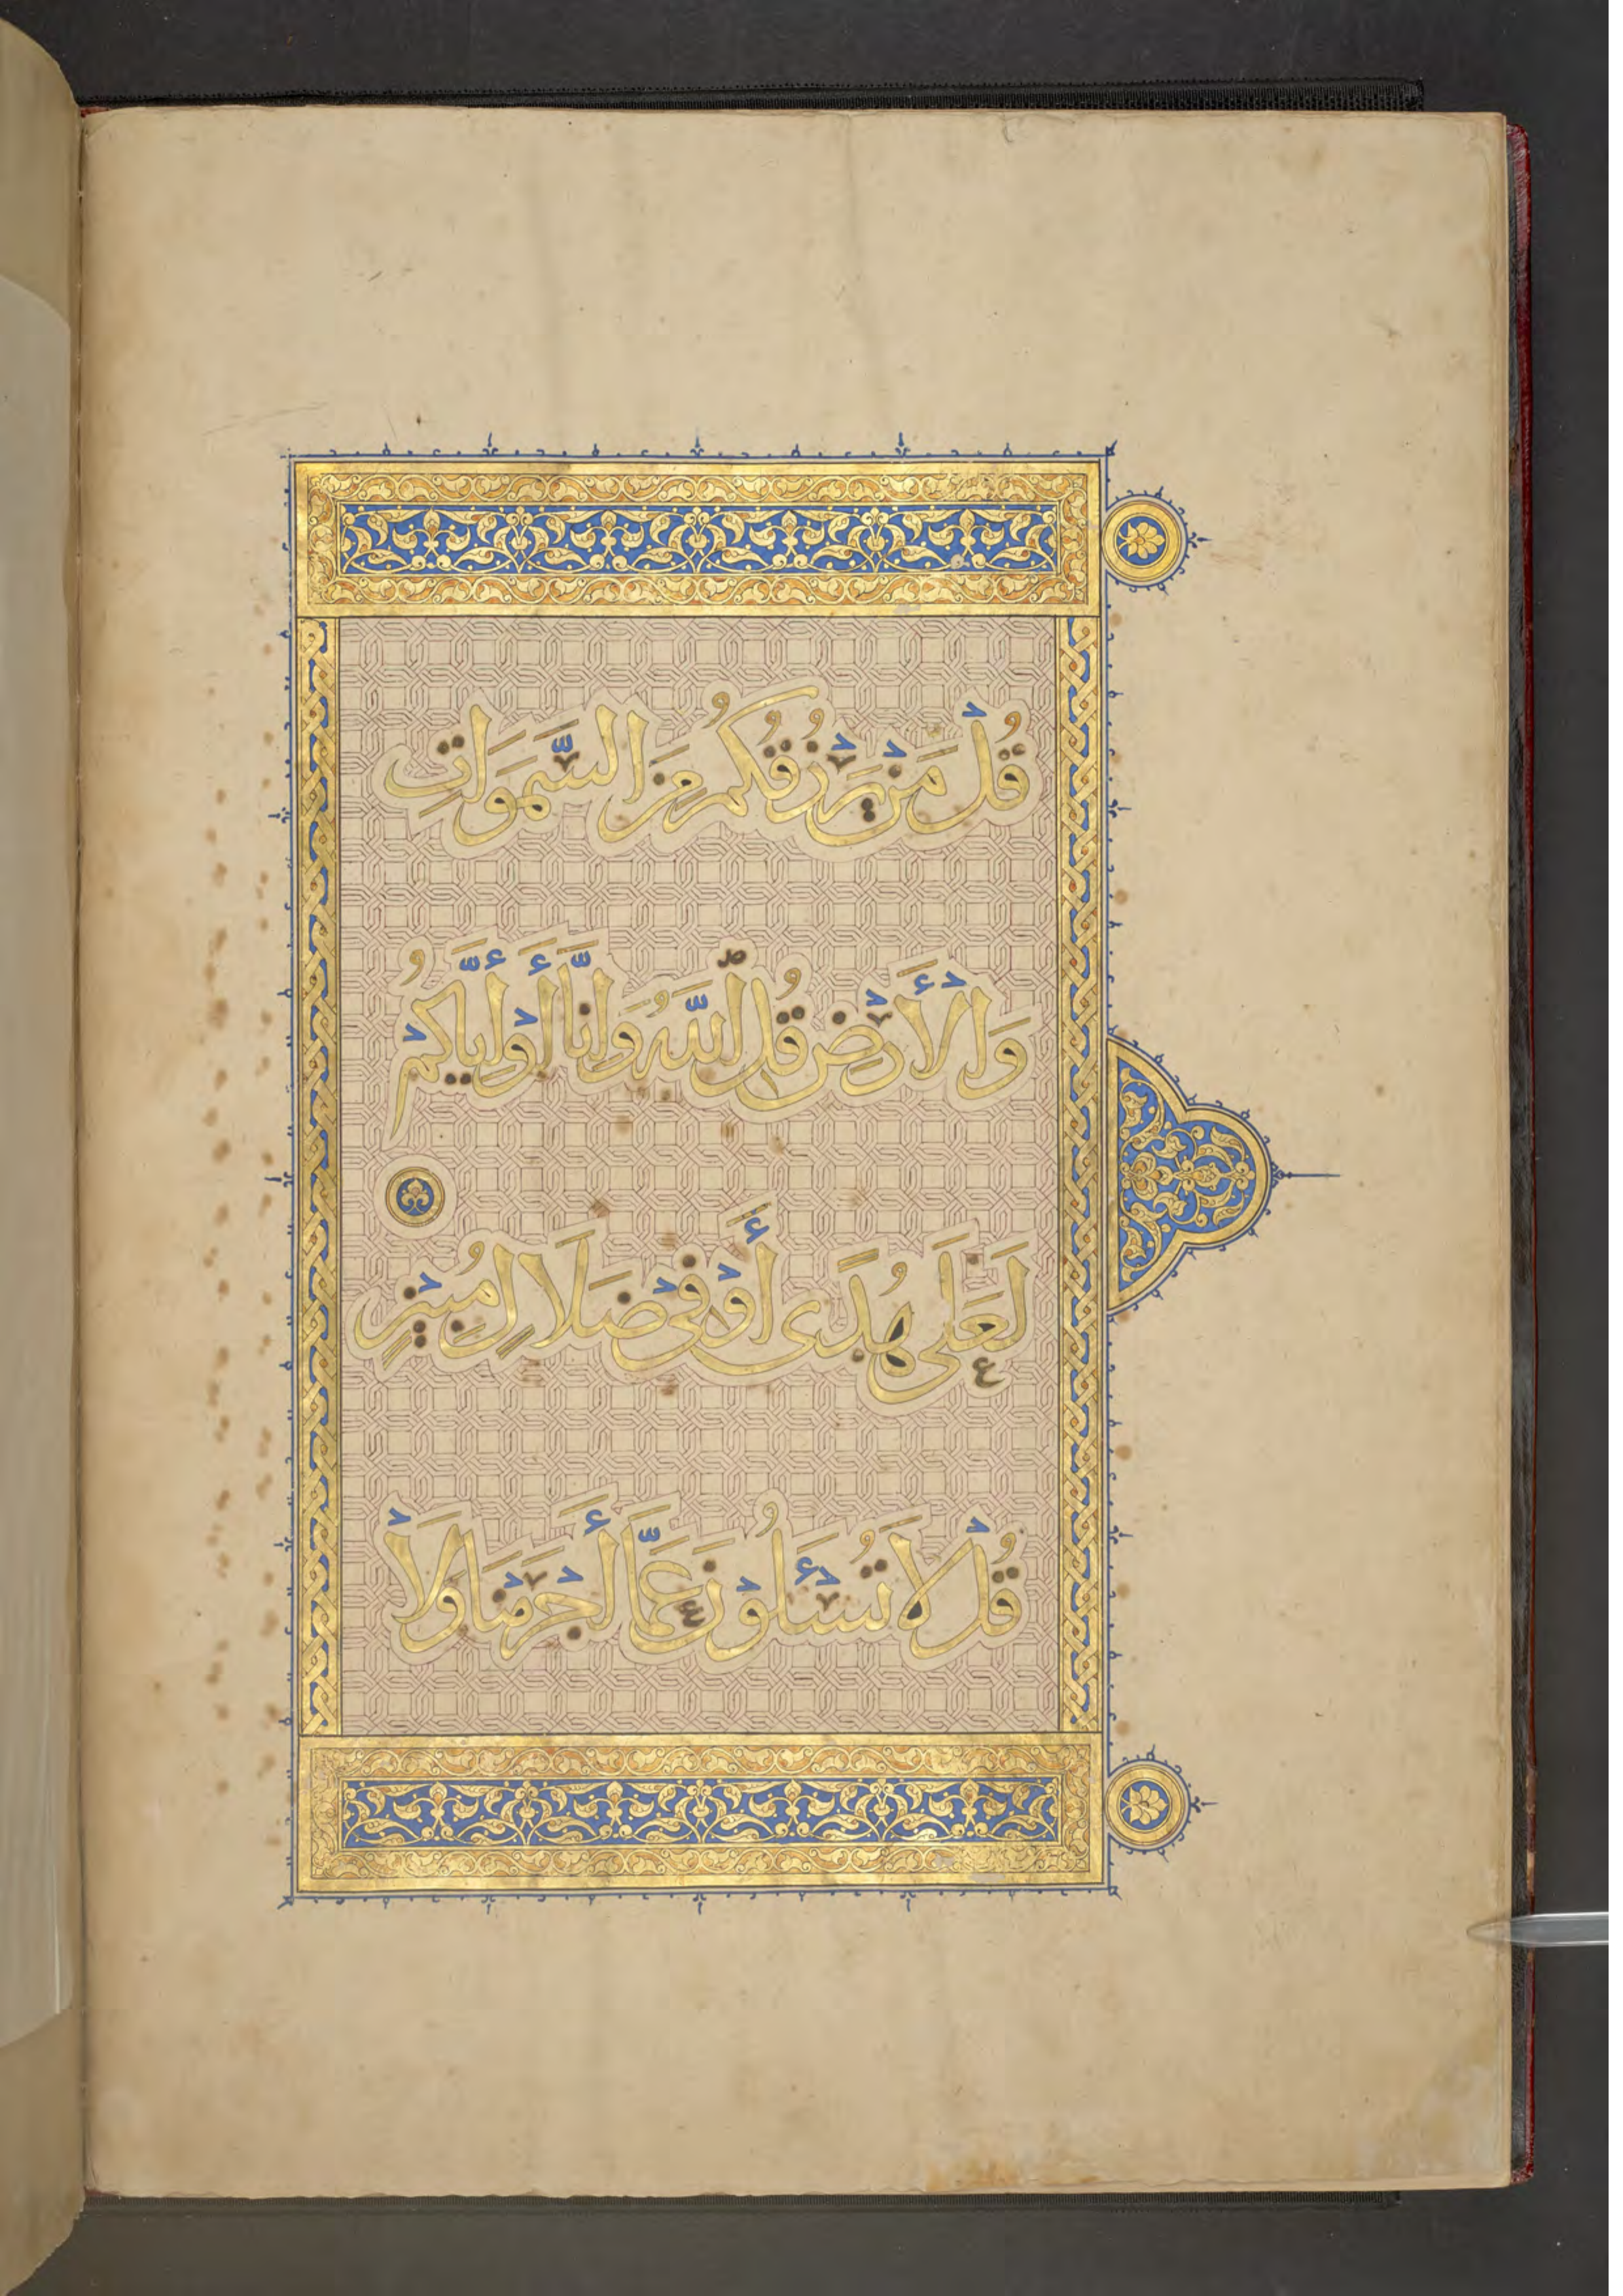 قُلْ مَنْ يَرْزُقُكُمْ مِنَ السَّمَوَاتِ
وَالْأَرْضِ قُلِ اللَّهُ وَإِنَّا أَوْ إِيَّاكُمْ
لَعَلَى هُدًى أَوْ فِي ضَلَالٍ مُبِينٍ
قُلْ لَا تُسْـَٔلُونَ عَمَّا أَجْرَمْنَا وَلَا